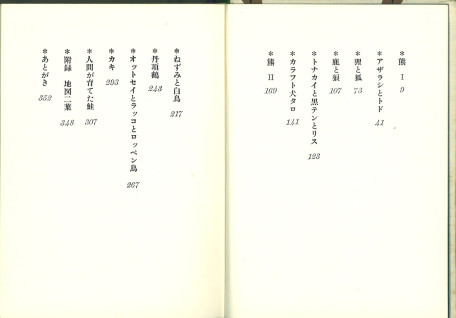 ＊熊　Ⅰ 9
＊アザラシとトド 41
＊狸と狐 73
＊鹿と狼 107
＊トナカイと黒テンとリス 123
＊カラフト犬タロ 141
＊熊　Ⅱ 169
＊ねずみと白鳥 217
＊丹頂鶴 243
＊オットセイとラッコとロッペン鳥 267
＊カキ 293
＊人間が育てた鮭 307
＊附録　地図二葉 348
＊あとがき 352